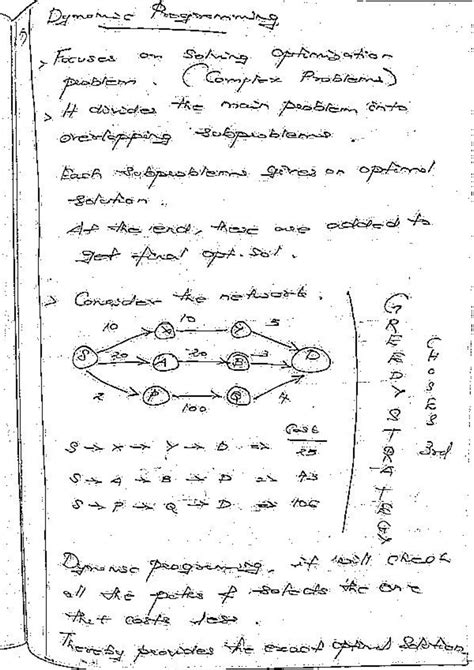 Dynamic Programming
> Focuses on solving optimization
problem. (Complex Problems)
> It divides the main problem into
overlapping subproblems.
Each subproblems gives an optimal
solution.
At the end, these are added to
get final opt. sol.
> Consider the network.
10 10 5
X Y
S 20 A 20 B 3 D
2 P 100 Q 4
Cost
S → X → Y → D ⇒ 25
S → A → B → D ⇒ 43
S → P → Q → D ⇒ 106
GREEDY STRATEGY
CHOSES
3rd
Dynamic programming, it will check
all the paths & selects the one
that costs less.
Thereby provides the exact optimal solution.